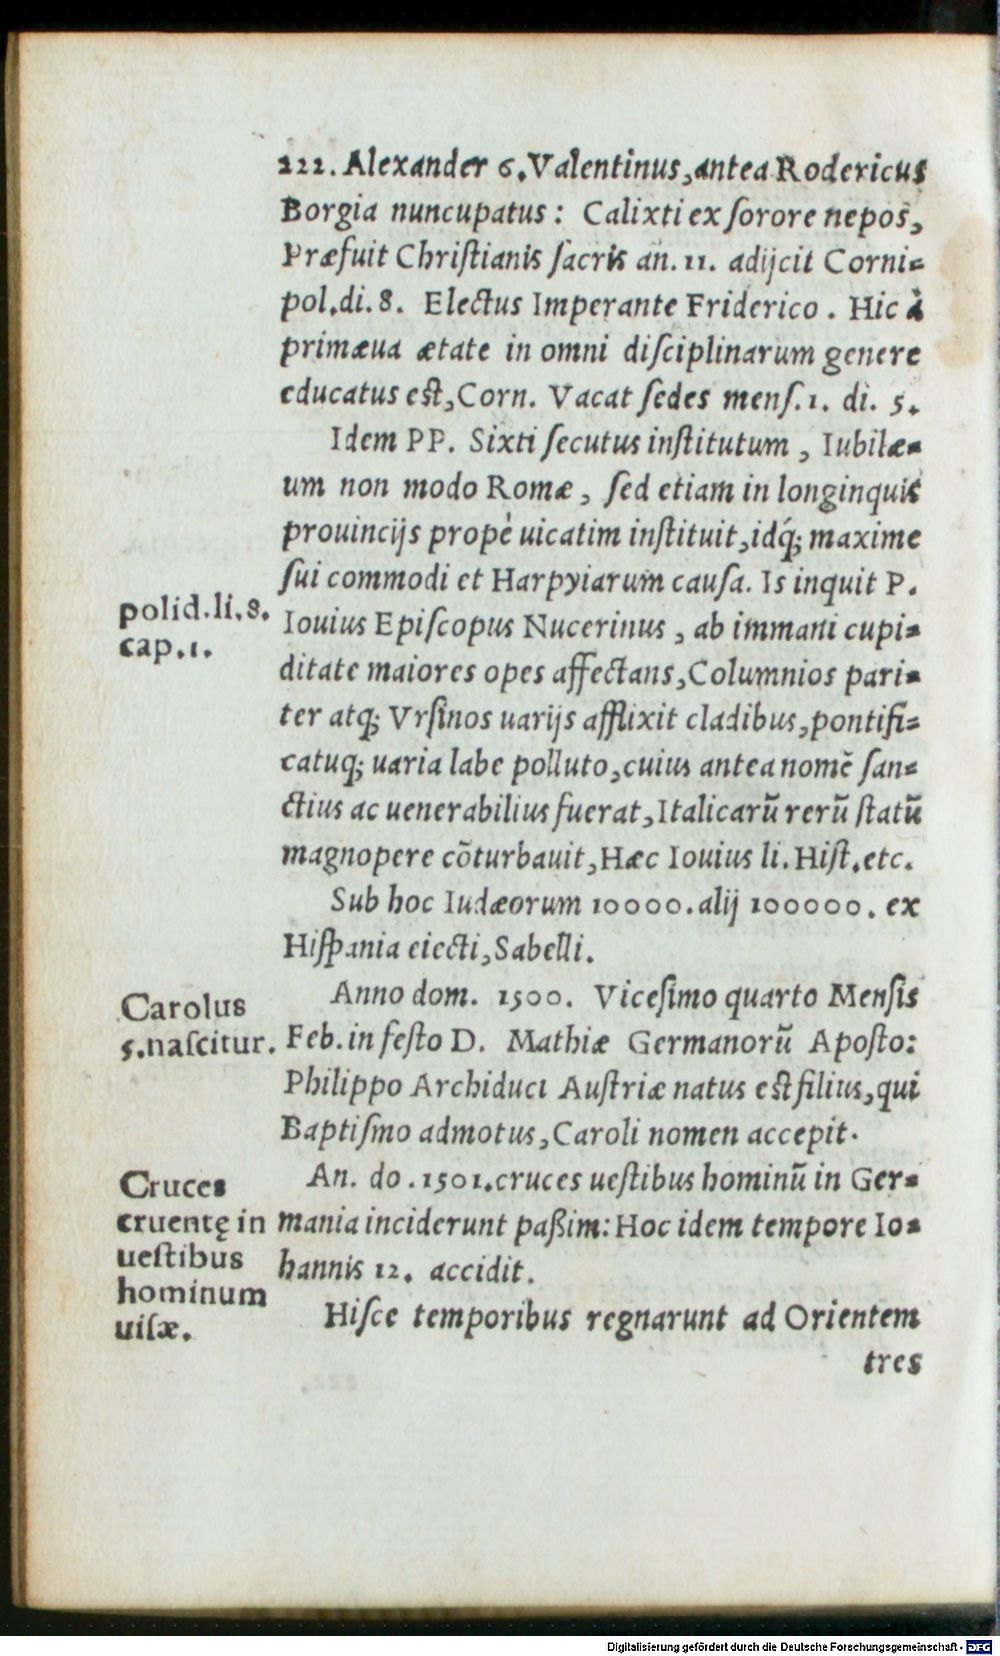 222. Alexander 6. Valentinus, antea Rodericus
Borgia nuncupatus: Calixti ex ſorore nepos,
Præfuit Chriſtianis ſacris an. 11. adijcit Corni=
pol. di. 8. Electus Imperante Friderico. Hic à
primæua ætate in omni diſciplinarum genere
educatus eſt, Corn. Vacat ſedes menſ. 1. di. 5.
Idem PP. Sixti ſecutus inſtitutum, Iubilæ=
um non modo Romæ, ſed etiam in longinquis
prouincijs propè uicatim inſtituit, idq́; maxime
ſui commodi et Harpyiarum cauſa. Is inquit P.
polid. li. 8.
cap. 1.
Iouius Epiſcopus Nucerinus, ab immani cupi=
ditate maiores opes affectans, Columnios pari=
ter atq; Vrſinos uarijs afflixit cladibus, pontifi=
catuq; uaria labe polluto, cuius antea nomē ſan=
ctius ac uenerabilius fuerat, Italicarū rerū ſtatū
magnopere cōturbauit, Hæc Iouius li. Hiſt. etc.
Sub hoc Iudæorum 10000. alij 100000. ex
Hiſpania eiecti, Sabelli.
Carolus
5. naſcitur.
Anno dom. 1500. Viceſimo quarto Menſis
Feb. in feſto D. Mathiæ Germanorū Apoſto:
Philippo Archiduci Auſtriæ natus eſt filius, qui
Baptiſmo admotus, Caroli nomen accepit.
Cruces
cruentę in
ueſtibus
hominum
uiſæ.
An. do. 1501. cruces ueſtibus hominū in Ger=
mania inciderunt paßim: Hoc idem tempore Io=
hannis 12. accidit.
Hiſce temporibus regnarunt ad Orientem
tres
Digitalisierung gefördert durch die Deutsche Forschungsgemeinschaft - DFG